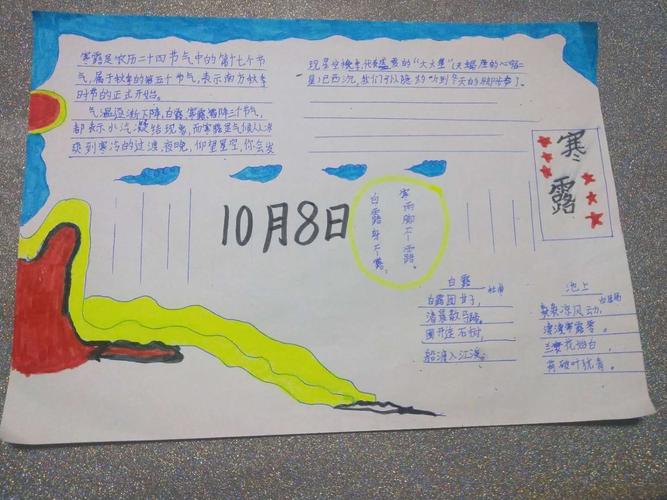 寒露是农历二十四节气中的第十七个节
气，属于秋季的第五个节气，表示南方秋季
时节的正式开始。
气温逐渐下降，白露、寒露、霜降三个节气，
都表示水汽凝结现象，而寒露是气候从凉
爽到寒冷的过渡，夜晚，仰望星空，你会发
现星空换季，代表盛夏的“大火星”（天蝎座的心宿二
星）已西沉，我们可以隐约听到冬天的脚步声了。
寒露
10月8日
白露身不露，
寒露脚不露。
白露
杜甫
白露团甘子，
清晨散马蹄。
圃开连石树，
船渡入江溪。
池上
白居易
袅袅凉风动，
凄凄寒露零。
兰衰花始白，
荷破叶犹青。